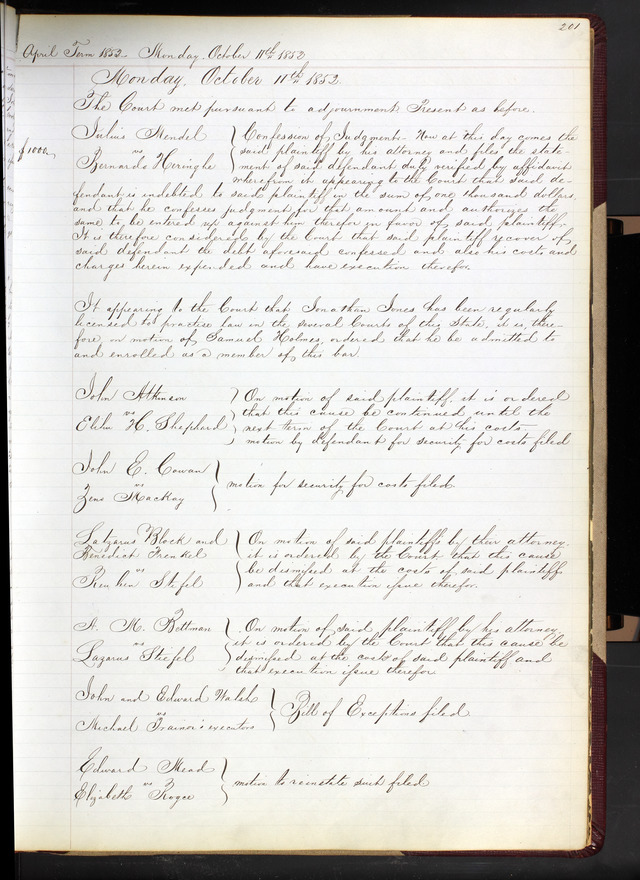 201
April Term 1852 Monday, October 11th 1852
Monday, October 11th 1852
The Court met pursuant to adjournment. Present as before.
Julius Mendel
vs
Bernardo Heringhe
$1000
Confession of Judgment - Now at this day comes the
said plaintiff by his attorney and files the state-
ment of said defendant duly verified by affidavit
wherefrom it appearing to the Court that said de-
fendant is indebted to said plaintiff in the sum of one thousand dollars,
and that he confesses judgment for that amount and authorizes the
same to be entered up against him therefor in favor of said plaintiff,
It is therefore considered by the Court that said plaintiff recover of
said defendant the debt aforesaid confessed and also his costs and
charges herein expended and have execution therefor.
It appearing to the Court that Jonathan Jones has been regularly
licensed to practise law in the several Courts of this State, it is, there-
fore, on motion of Samuel Holmes, ordered that he be admitted to
and enrolled as a member of this bar
John Atkinson
vs
Elihu H. Shepherd
On motion of said plaintiff, it is ordered
that this cause be continued until the
next term of the Court at his costs-
motion by defendant for security for costs filed
John E. Cowan
vs
Zeno Mackay
motion for security for costs filed
Latzarus Block and
Benedict Frenkel
vs
Reuben Stifel
On motion of said plaintiffs by their attorney
it is ordered by the Court that this cause
be dismissed at the costs of said plaintiffs
and that execution issue therefor.
A. M. Bettman
vs
Lazarus Stiefel
On motion of said plaintiff by his attorney
it is ordered by the Court that this cause be
dismissed at the costs of said plaintiff and
that execution issue therefor
John and Edward Walsh
vs
Michael Trainor's executors
Bill of Exceptions filed
Edward Mead
vs
Elizabeth Kryce
motion to reinstate suit filed